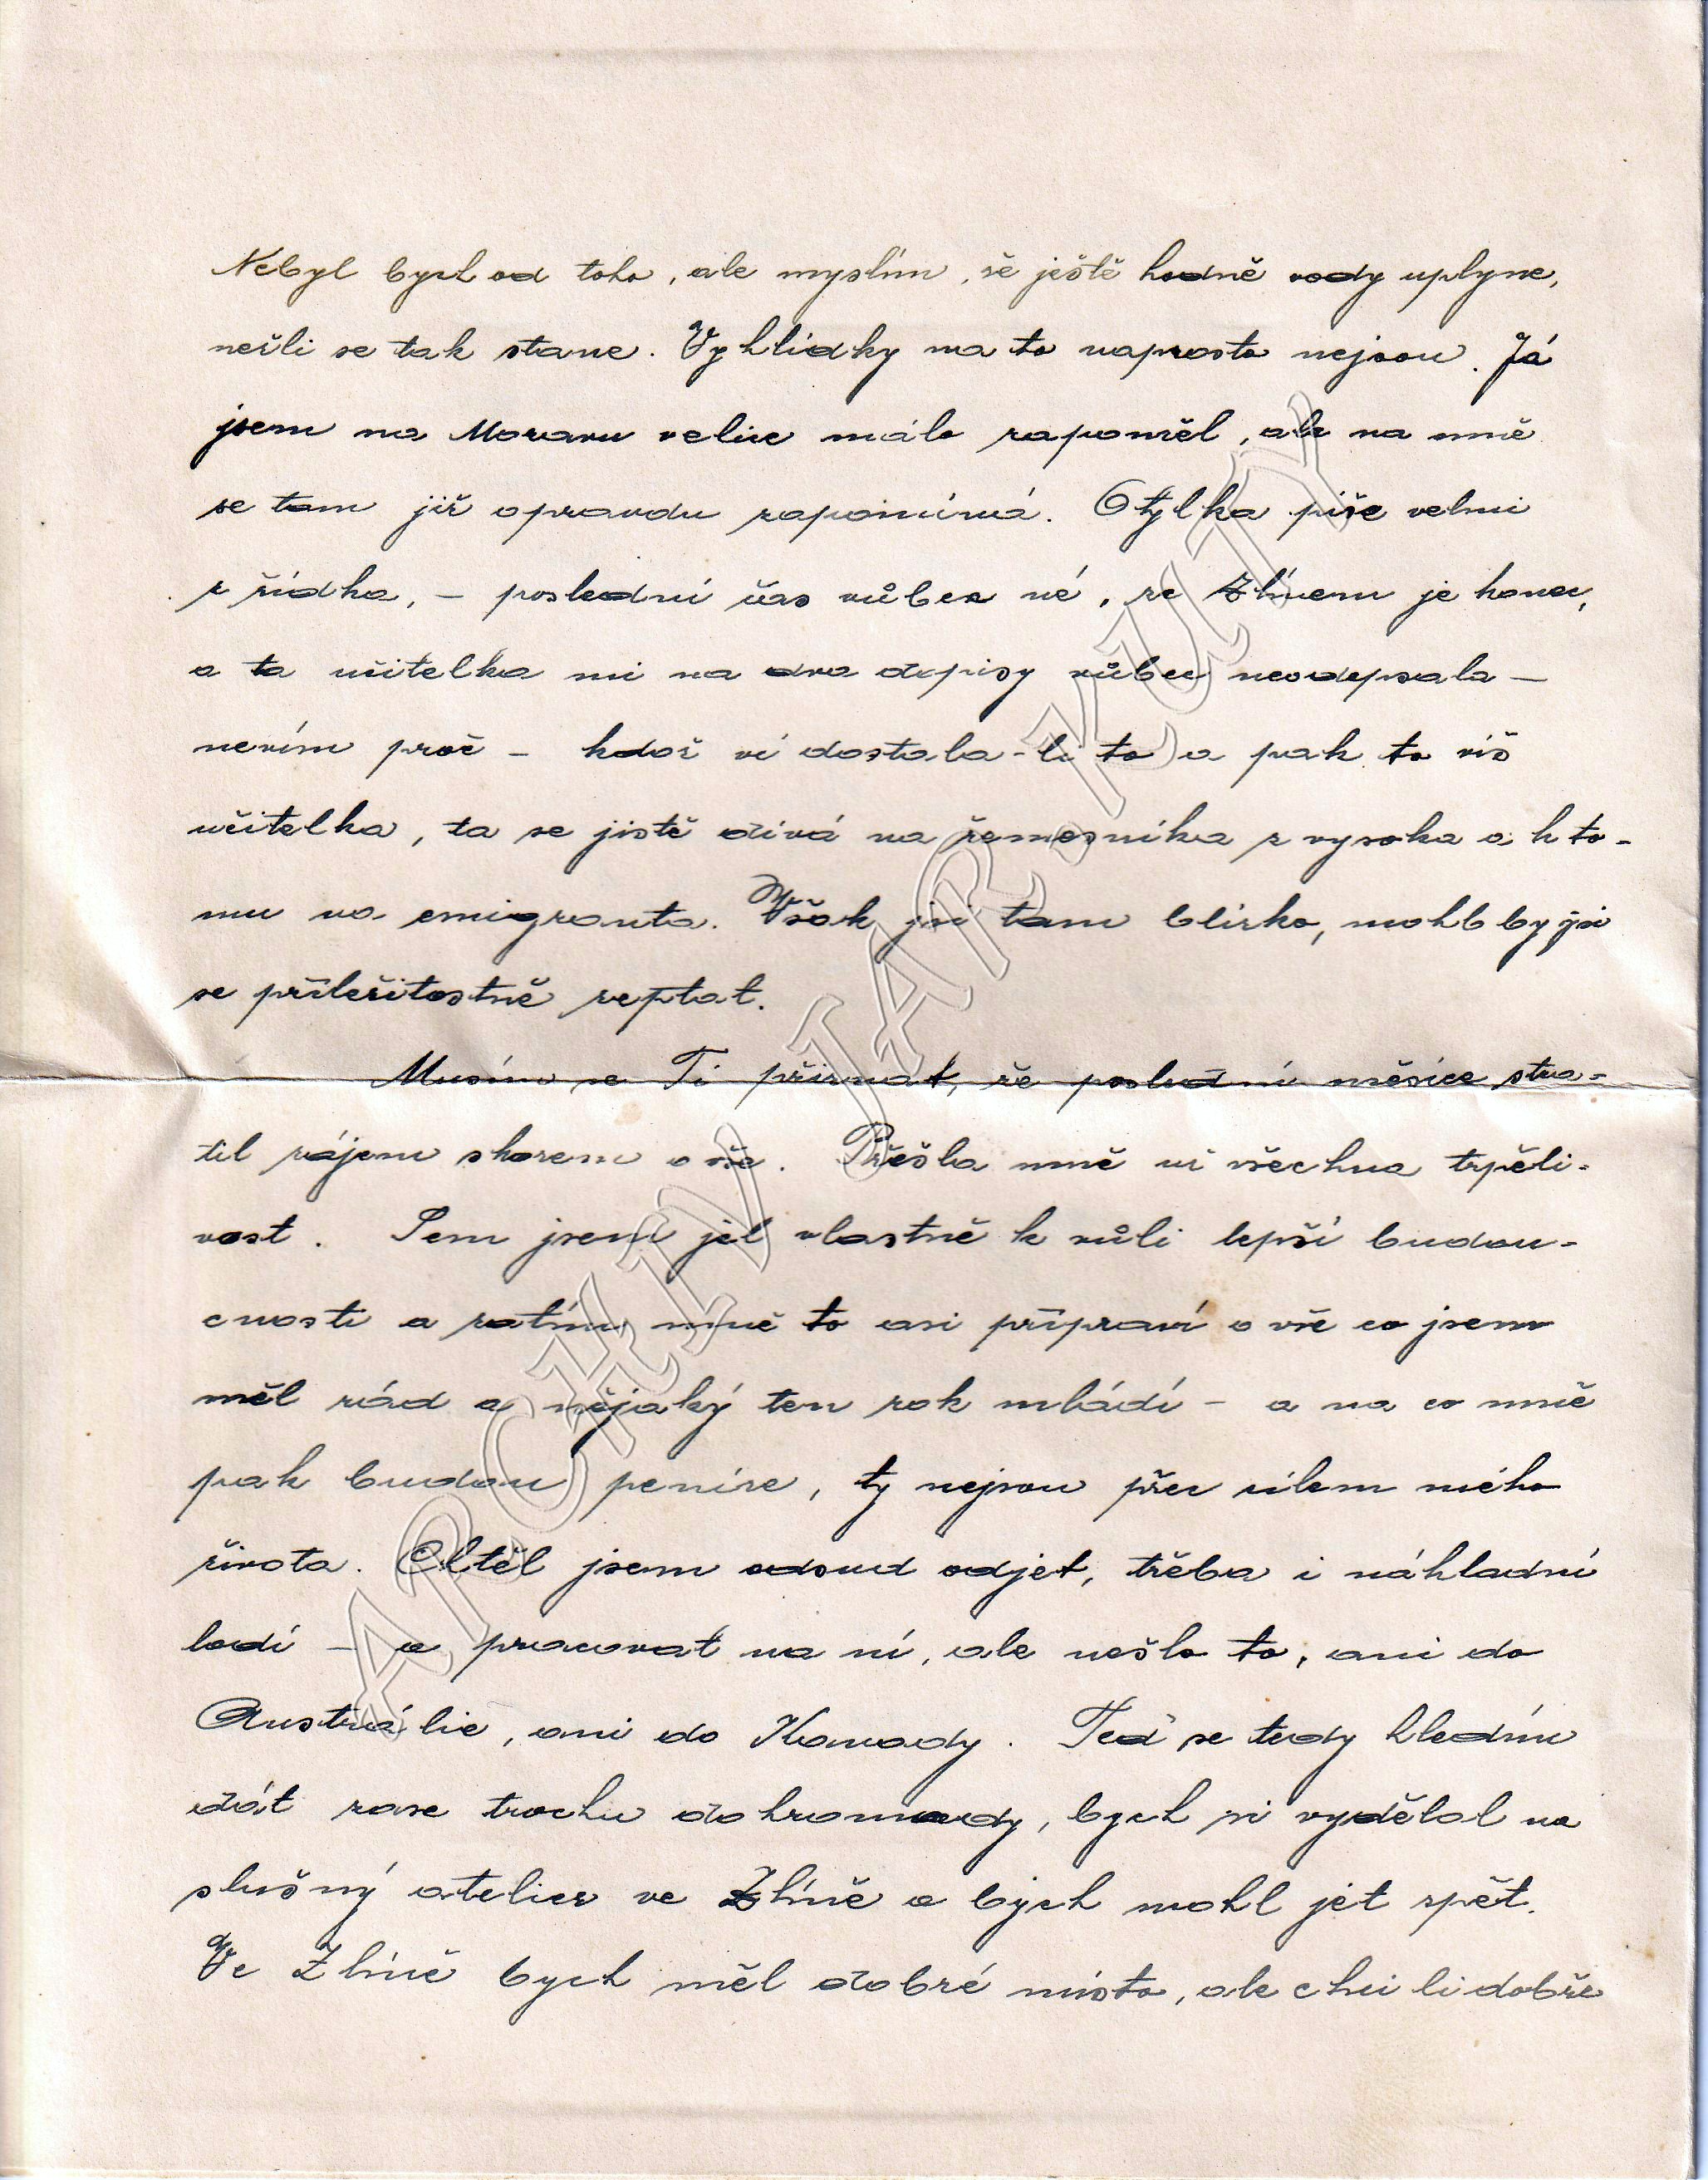 Nebyl bych od toho, ale myslím, že ještě hodně vody uplyne,
nežli se tak stane. Vyhlídky na to naprosto nejsou. Já
jsem na Moravu velice málo zapoměl, ale na mně
se tam již opravdu zapomíná. Otylka píše velmi
z řídka, – poslední čas vůbec né, ze Zlínem je konec,
a ta učitelka mi na dva dopisy vůbec neodepsala –
nevím proč – kdož ví dostala-li to a pak to víš
učitelka, ta se jistě dívá na řemesníka z vysoka a k to-
mu na emigranta. Však jsi tam blízko, mohl by jsi
se příležitostně zeptat.
Musím se Ti přiznat, že poslední měsíce stra-
til zájem skorem o vše. Přešla mně už všechna trpěli-
vost. Sem jsem jel vlastně k vůli lepší budou-
cnosti a zatím mně to asi připraví o vše co jsem
měl rád a nějaký ten rok mládí – a na co mně
pak budou peníze, ty nejsou přec cílem mého
života. Chtěl jsem odsud odjet, třeba i nákladní
lodí – a pracovat na ní, ale nešlo to, ani do
Austrálie, ani do Kanady. Teď se tedy hledím
dát zase trochu dohromady, bych si vydělal na
slušný atelier ve Zlíně a bych mohl jet zpět.
Ve Zlíně bych měl dobré místo, ale chci li dobře
ARCHIV JAR. KUTÝ